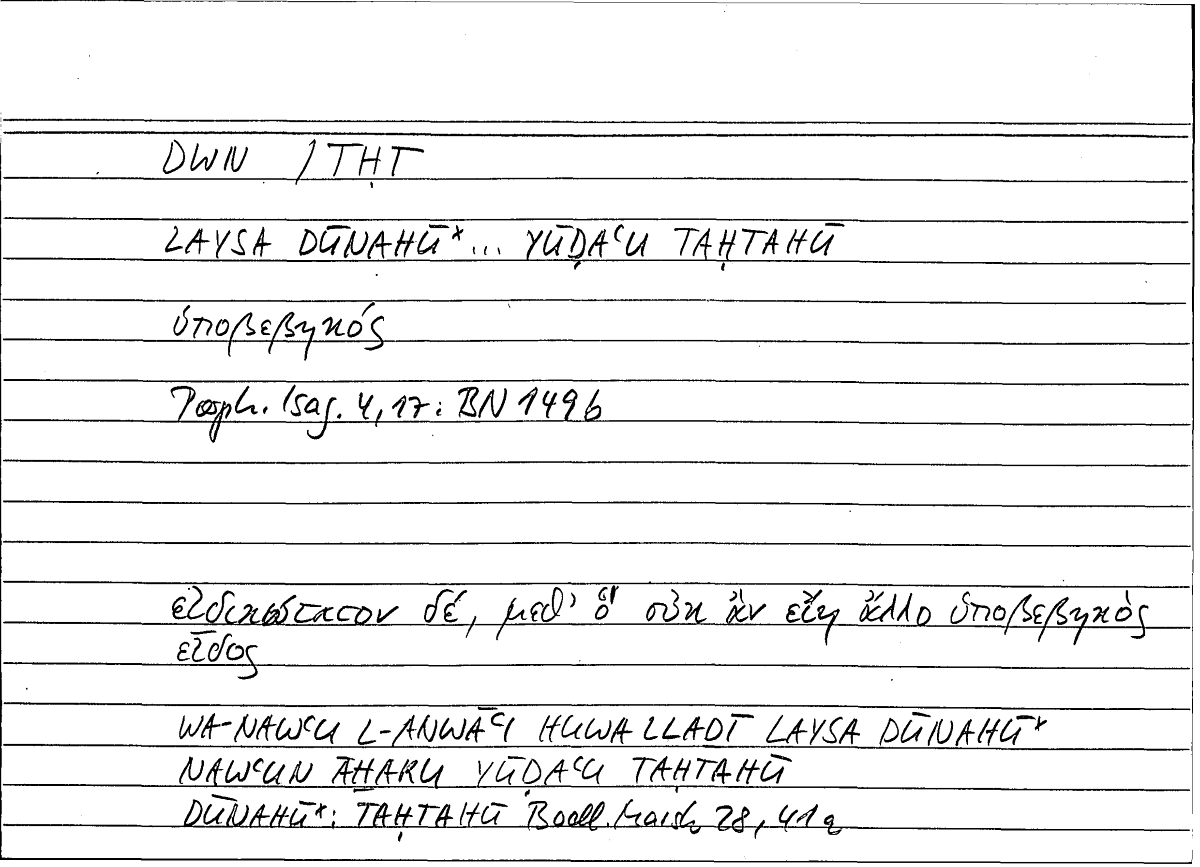 DWN / TḤT
LAYSA DŪNAHŪ* ... YŪḌAʿU TAḤTAHŪ
ὑποβεβηκός
Porph. Isag. 4, 17: BN 149b
εἰδικώτατον δέ, μεθ' ὃ οὐκ ἂν εἴη ἄλλο ὑποβεβηκὸς
εἶδος
WA-NAWʿU L-ANWĀʿI HUWA LLAḎĪ LAYSA DŪNAHŪ*
NAWʿUN ĀḪARU YŪḌAʿU TAḤTAHŪ
DŪNAHŪ*: TAḤTAHŪ Bodl. Marsh 28, 41a